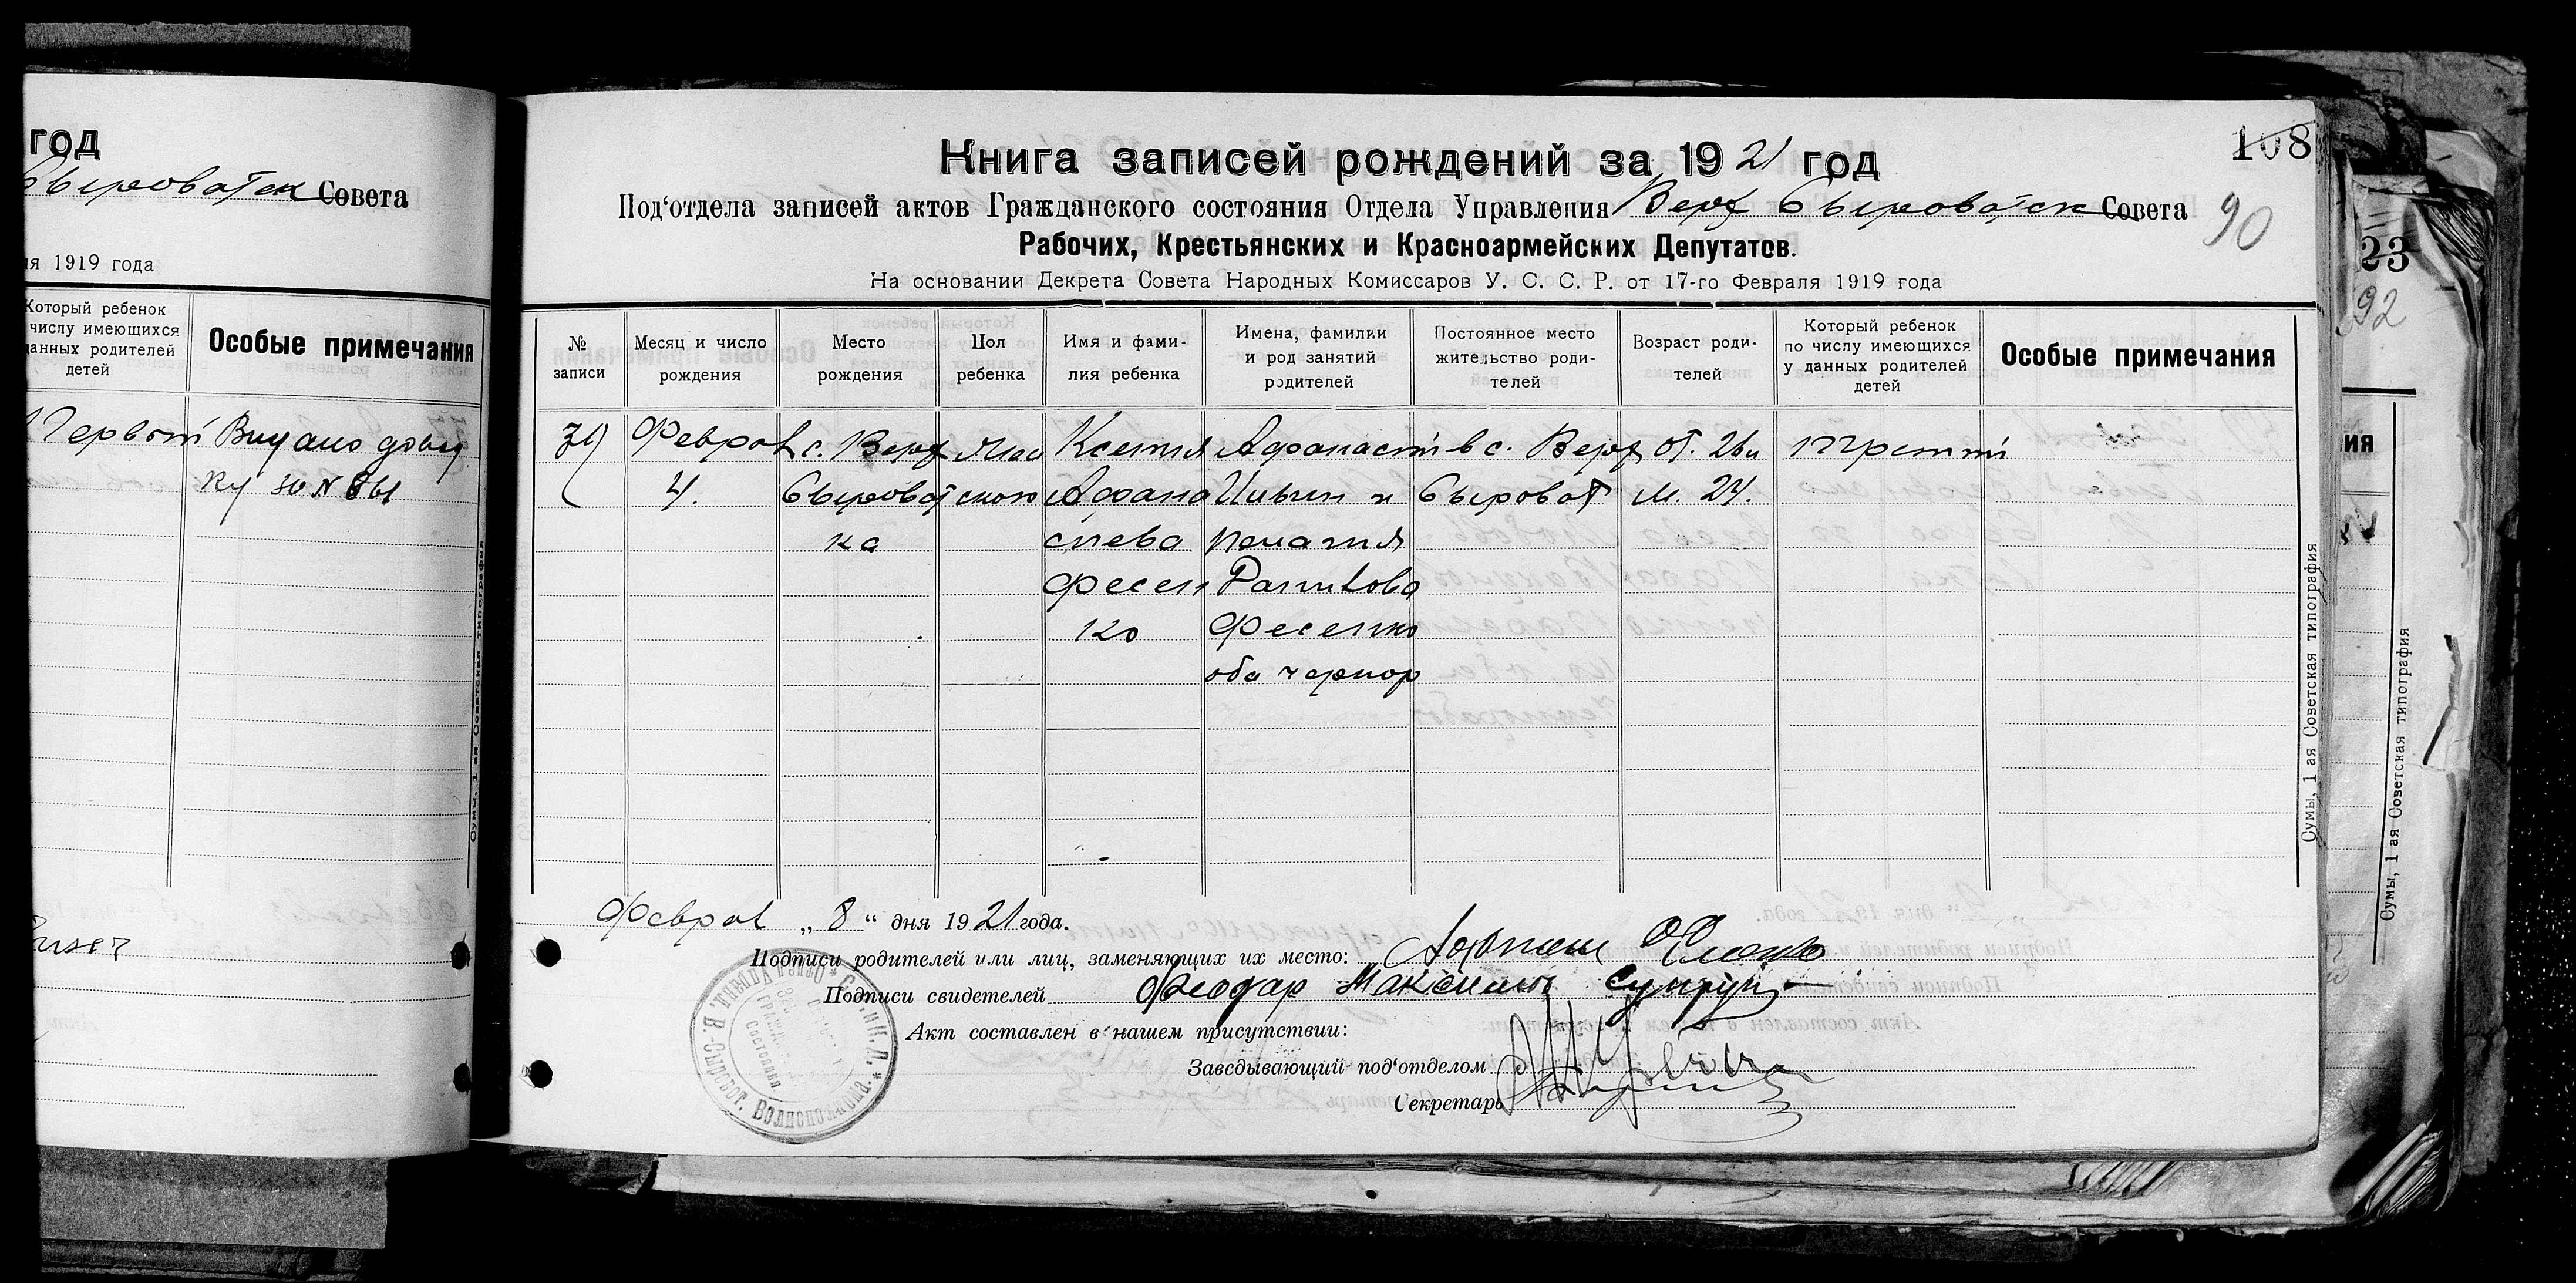 год
Сыроватск Совета
ия 1919 года
Который ребенок
числу имеющихся
данных родителей
детей
Особые примечания
Первый
Видано довид
ку за N 861
Сумы, 1 ая Советская типография
108
90
Книга записей рождений за 1921 год
Под‘отдела записей актов Гражданского состояния Отдела Управления Верх Сыроватск Совета
Рабочих, Крестьянских и Красноармейских Депутатов.
На основании Декрета Совета Народных Комиссаров У. С. С. Р. от 17-го Февраля 1919 года
№
записи
Месяц и число
рождения
Место
рождения
Пол
ребенка
Имя и фами-
лия ребенка
Имена, фамилии
и род занятий
родителей
Постоянное место
жительство роди-
телей
Возраст роди-
телей
Который ребенок
по числу имеющихся
у данных родителей
детей
Особые примечания
Феврал
4.
с. Верх
Сыроват
ка
жен
ского
Ксения
Афана
сиева
Фесен
ко
Афанасий
Ильин и
Фесенко
оба чернор
в с. Верх
Сыроват
от. 26 и
м. 24.
Третий
Сумы, 1 ая Советская типография
Феврал „ 8 “ дня 1921 года.
Подписи родителей или лиц, заменяющих их место:
Подписи свидетелей Феодар Максимов Супрун
Акт составлен в нашем присутствии:
Заведывающий под‘отделом
Секретарь
В.-Сироват. Волисполкома.
Состояния
23
92
ия
Сумы, 1 ая Советская типография